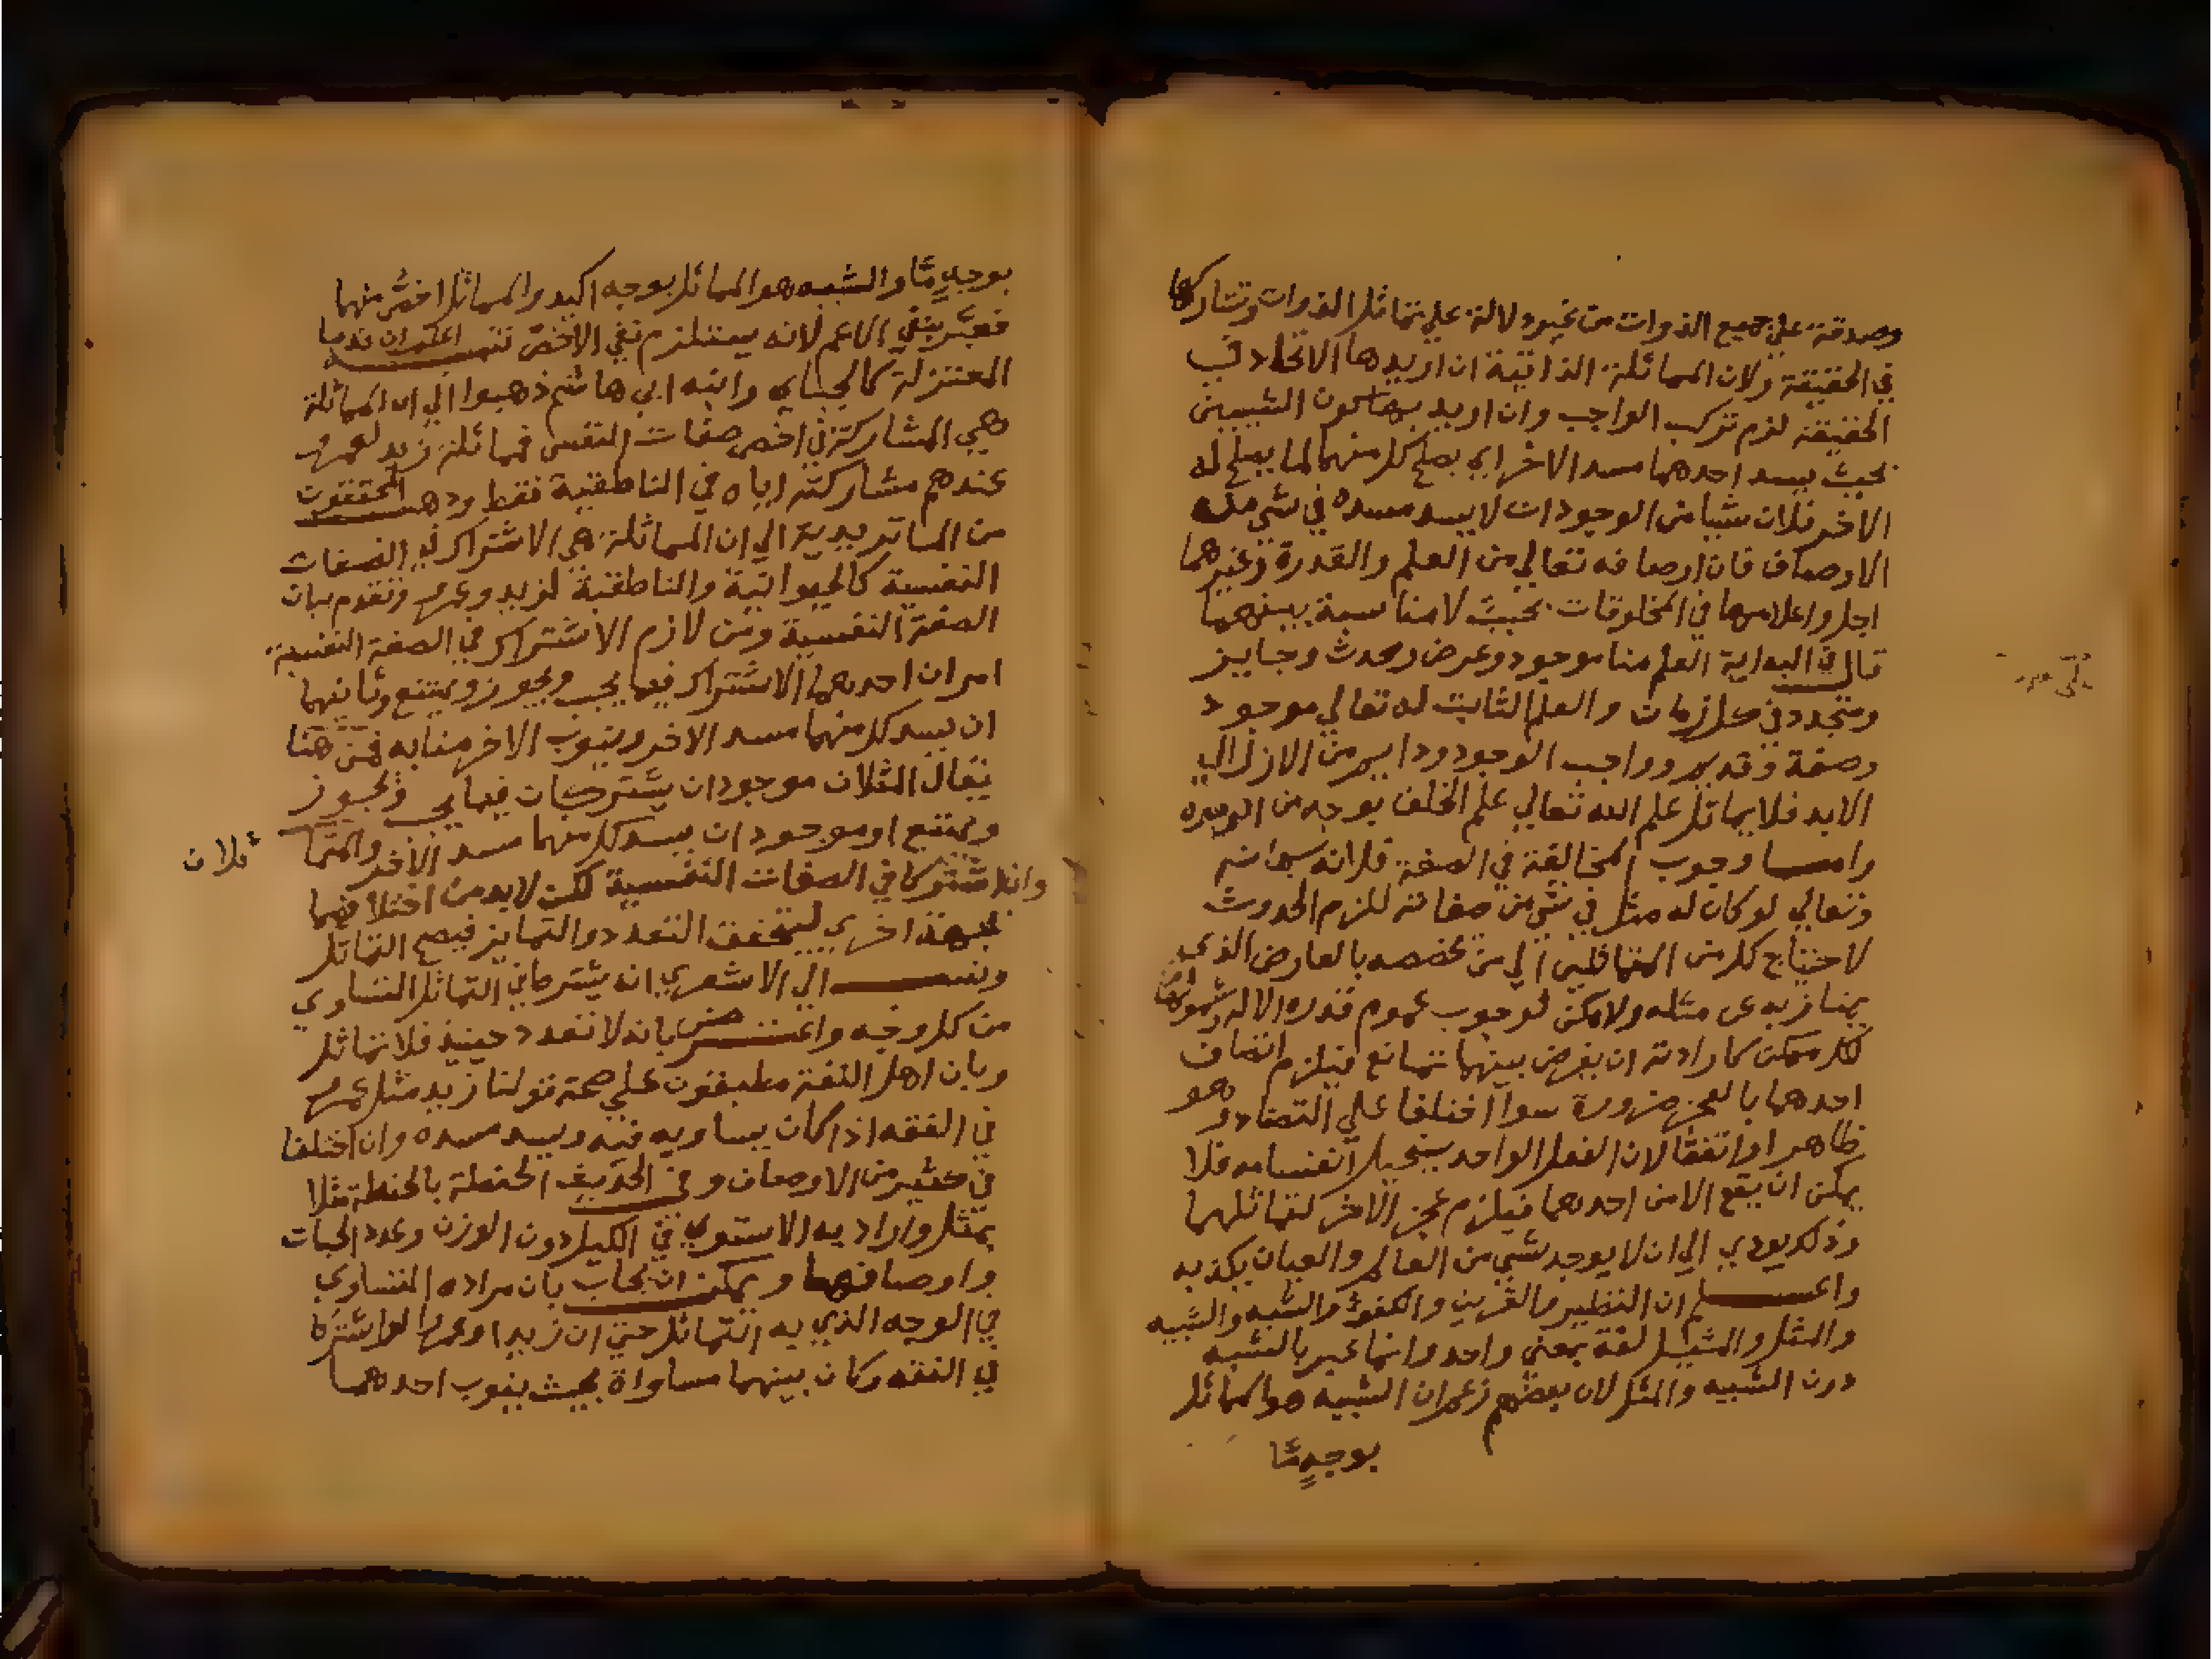 وصدقه على جميع الذوات من غير دلالة على تماثل الذوات وتشاركها
في الحقيقة ولان المماثلة الذاتية ان اريد بها الاتحاد في
الحقيقة لزم تركب الواجب وان اريد بها كون الشيئين
بحيث يسد احدهما مسد الاخر اي يصلح كل منهما لما يصلح له
الاخر فلان شيا من الوجودات لا يسد مسده في شي من
الاوصاف فان اوصافه تعالي من العلم والقدرة وغيرهما
اجل واعلا مما في المخلوقات بحيث لا مناسبة بينهما
قال في البداية العلم منا موجود وعرض ومحدث وجايز
ومتجدد في كل زمان والعلم الثابت له تعالي موجود
وصفة وقديم وواجب الوجود ودايم من الازل الي
الابد فلا يماثل علم الله تعالي علم الخلق بوجه من الوجوه
واما وجوب المخالفة في الصفة فلانه سبحانه
وتعالي لو كان له مثل في شي من صفاته للزم الحدوث
لاحتياج كل من المتماثلين الي من يخصصه بالعارض الذي
يمتاز به عن مثله ولامكن لوجوب عموم قدرة الاله وشمولها
لكل ممكن كارادته ان يفرض بينهما تمانع فيلزم اتصاف
احدهما بالعجز ضرورة سوا اختلفا علي التضاد وهو
ظاهر او اتفقا لان الفعل الواحد يستحيل انقسامه فلا
يمكن ان يقع الا من احدهما فيلزم عجز الاخر لتماثلهما
وذلك يودي الي ان لا يوجد شي من العالم والعيان يكذبه
واعلم ان النظير والقرين والكفؤ والشبه والشبيه
والمثل والمثيل لغة بمعني واحد وانما عبر بالشبه
دون الشبيه والمثل لان بعضهم زعم ان الشبيه هو المماثل
بوجهٍ مّا
بوجهٍ مّا والشبه هو المماثل بوجه اكيد والمماثل اخصّ منهما
فعبّر بنفي الاعم لانه يستلزم نفي الاخصّ تتمـه اعلم ان قدما
المعتزلة كالجباي وابنه ابي هاشم ذهبوا الي ان المماثلة
هي المشاركة في اخص صفات النفس فمماثلة زيد لعمرو
عندهم مشاركته اياه في الناطقية فقط وذهب المحققون
من الماتريدية الي ان المماثلة هي الاشتراك في الصفات
النفسية كالحيوانية والناطقية لزيد وعمرو وتقدم بيان
الصفة النفسية ومن لازم الاشتراك في الصفة النفسية
امران احدهما الاشتراك فيما يجب ويجوز ويمتنع وثانيهما
ان يسد كل منهما مسد الاخر وينوب الاخر منابه فمن هنا
يقال المثلان موجودان يشتركان فيما يجب ويجوز
ويمتنع او موجودان يسد كل منهما مسد الاخر والمتما
ثلان
وان اشتركا في الصفات النفسية لكن لا بد من اختلافهما
بجهة اخري ليتحقق التعدد والتمايز فيصح التماثل
ونسب الي الاشعري انه يشترط في التماثل التساوي
من كل وجه واعترض بانه لا تعدد حينيذ فلا تماثل
وبان اهل اللغة مطبقون علي صحة قولنا زيد مثل عمرو
في الفقه اذا كان يساويه فيه ويسد مسده وان اختلفا
في كثير من الاوصاف وفي الحديث الحنطة بالحنطة مثلا
بمثل واراد به الاستوي في الكيل دون الوزن وعدد الحبات
واوصافهما ويمكن ان يجاب بان مراده التساوي
في الوجه الذي به التماثل حتي ان زيدا وعمرا لو اشتركا
في الفقه وكان بينهما مساواة بحيث ينوب احدهما